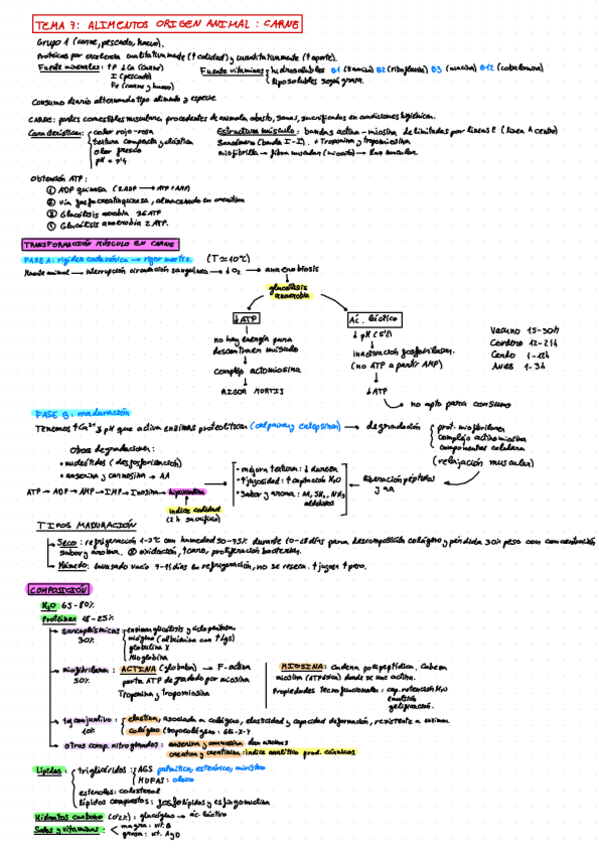 TEMA 7: ALIMENTOS ORIGEN ANIMAL: CARNE
Grupo 1 (carne, pescado, huevo).
Proteicos por excelencia cualitativamente (↑calidad) y cuantitativamente (↑aporte).
Fuente minerales: ↑P ↓Ca (carne)
I (pescado)
Fe (carne y huevo)
Fuente vitaminas: hidrosolubles B1 (tiamina) B2 (riboflavina) B3 (niacina) B12 (cobalamina)
liposolubles según grasa
Consumo diario alternando tipo alimento y especie
CARNE: partes comestibles musculatura procedentes de animales abasto, sanos, sacrificados en condiciones higiénicas.
Características: color rojo-rosa
textura compacta y elástica
olor fresco
pH = 7'4
Estructura músculo: bandas actina-miosina delimitadas por líneas Z (línea M centro)
Troponina y tropomiosina
miofibrilla → fibra muscular (miocito) → haz muscular.
Obtención ATP:
① ADP quinasa (2ADP → ATP+AMP)
② vía fosfocreatinquinasa, almacenado en creatina
③ Glucólisis aerobia 36ATP
④ Glucólisis anaerobia 2 ATP.
TRANSFORMACIÓN MÚSCULO EN CARNE
FASE A: rigidez cadavérica → rigor mortis. (T≈10ºC)
Muerte animal → interrupción circulación sanguínea → ↓O2 → anaerobiosis
glucólisis anaerobia
↓ATP
Ác. láctico
no hay energía para
↓pH (5'4)
músculo
inactivación fosforilasas.
complejo actomiosina
(no ATP a partir AMP)
RIGOR MORTIS
↓ATP
no apto para consumo
Vacuno 15-30h
Cordero 12-24h
Cerdo 1-12h
Aves 1-3h
FASE B: maduración
Tenemos ↑Ca2+ y pH que activa enzimas proteolíticas (calpaínas y catepsinas) → degradación
prot. miofibrilares
complejo actinomiosina
componentes celulares
(relajación muscular)
Otras degradaciones:
• nucleótidos (desfosforilación)
• anserina y carnosina → AA
ATP → ADP → AMP → IMP → Inosina → hipoxantina
índice calidad
(24 sacrificio)
• mejora textura: ↓ dureza
• ↑jugosidad: ↑captación H2O
• Sabor y aroma: AA, SH2, NH3
aldehídos
liberación péptidos
y AA
TIPOS MADURACIÓN
Seco: refrigeración 1-3ºC con humedad 50-75% durante 10-28 días para descomposición colágeno y pérdida 30% peso con concentración
sabor y aroma. oxidación, ↑caro, proliferación bacterias.
Húmeda: envasado vacío 7-11 días en refrigeración, no se reseca. ↑jugosa ↑peso.
COMPOSICIÓN
H2O 65-80%
Proteínas 18-25%
sarcoplásmicas 30%
enzimas glucólisis y ciclo pentosas
miógeno (albúmina con ↑Lys)
globulina X
Mioglobina
miofibrilares 50%: ACTINA (globular) → F-actina
porta ATP degradado por miosina
Troponina y tropomiosina
MIOSINA: cadena polipeptídica. Cabeza
miosina (ATPásica) donde se une actina.
Propiedades tecnofuncionales: cap. retención H2O
emulsión
gelificación.
tej. conjuntivo 10%: elastina, asociada a colágeno, elasticidad y capacidad deformación, resistente a enzimas
colágeno (tropocolágeno: Gli-X-Y
otros comp. nitrogenados: anserina y carnosina dan aromas
creatina y creatinina: índice analítico prod. cárnicos
Lípidos: triglicéridos: AGS palmítico, esteárico, mirístico
MUFAS: oleico
esteroles: colesterol
lípidos compuestos: fosfolípidos y esfingomielina
Hidratos carbono (0'2%): glucógeno → ác. láctico
Sales y vitaminas: magra: vit. B
grasa: vit. A y D